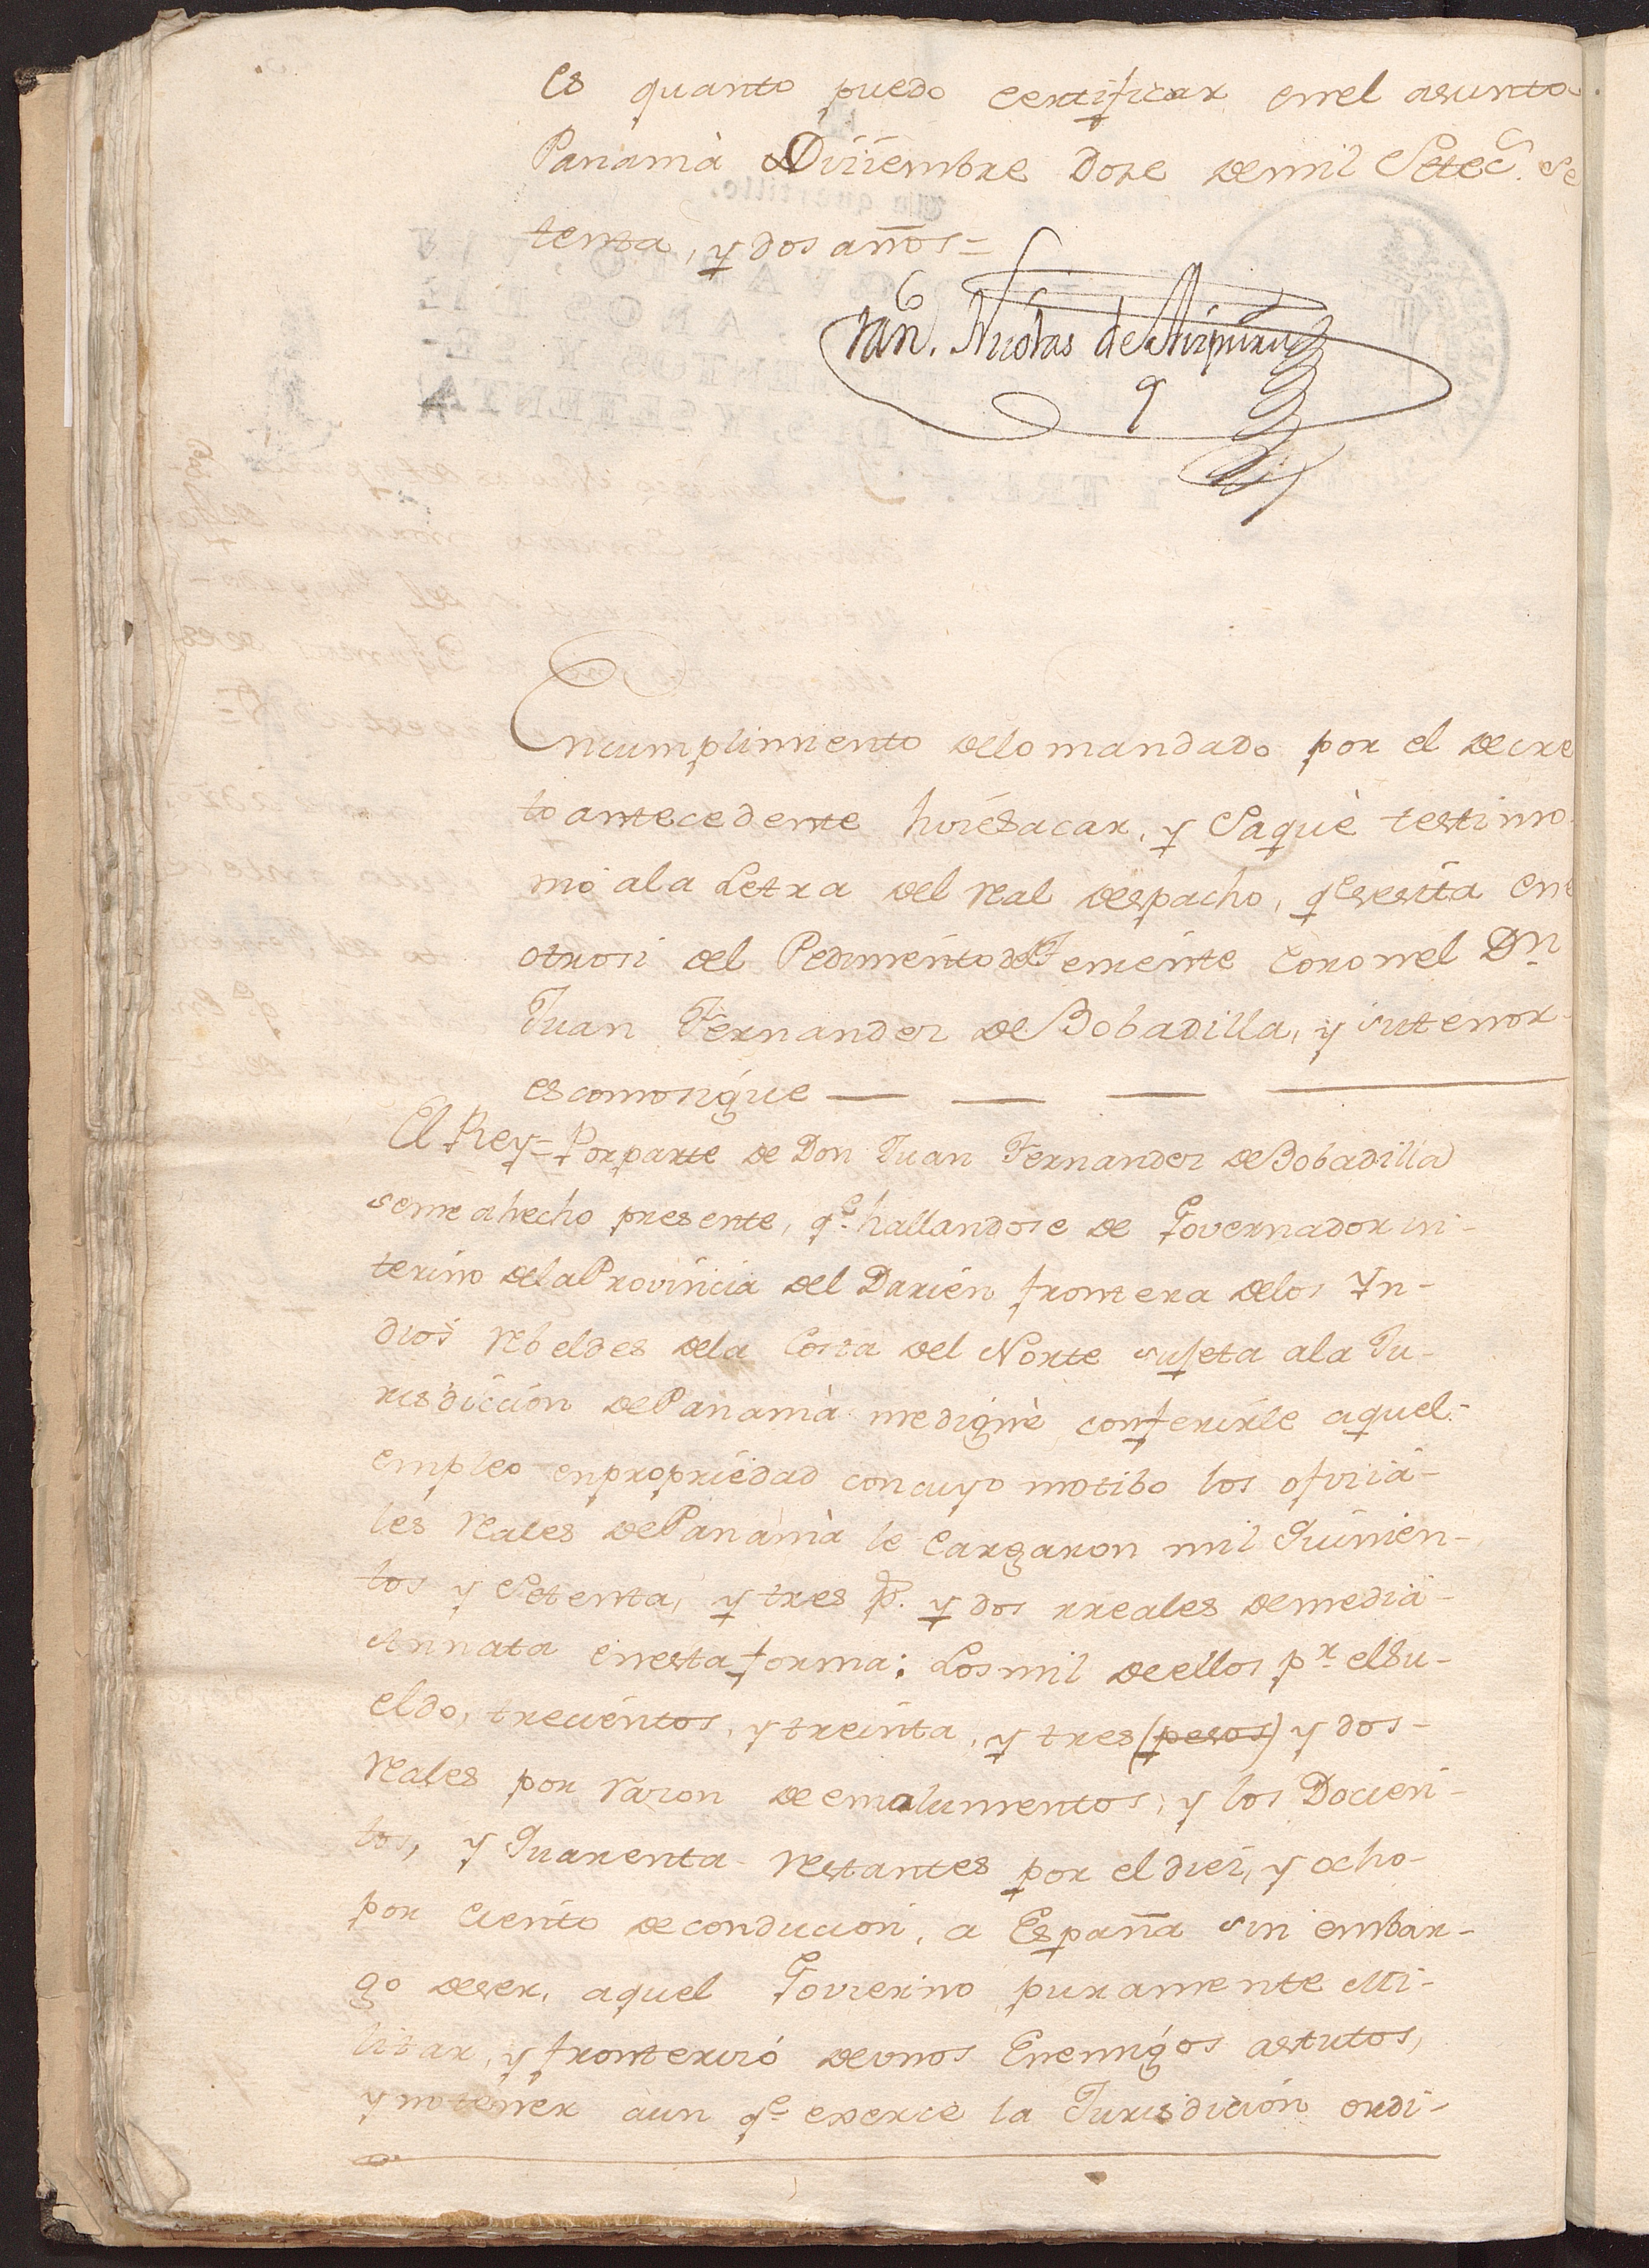 es quanto puedo certificar enel asunto
Panamà Diziembre Doze demil Setec.s se
tenta, y dos años=
Nicolas de Aizpuru
Encumplimiento delo mandado por el decre
to antecedente hize sacar, y Saquè testimo
nio ala Letra del real despacho, qe se sita en e
otrosi del Pedimento del Teniente Coronel Dn
Juan Fernandez de Bobadilla, y sutenor
es como sigue
El Rey= Por parte de Don Juan Fernandez de Bobadilla
seme ahecho presente, qe hallandose de Governador in-
terino dela Provincia del Darien frontera delos Yn-
dios rebeldes dela Costa del Norte sujeta ala Ju-
risdiccion de Panamà medignè conferirle aquel-
empleo enpropriedad concuyo motibo los ofizia-
les reales de Panamà le Cargaron mil Quinien-
tos y Setenta, y tres ps. y dos rreales de media-
Annata enesta forma: Los mil de ellos pr el Su-
eldo, trecientos, y treinta, y tres (pesos) y dos-
reales por razon de emolumentos; y los Docien-
tos, y Quarenta restantes por el diez, y ocho-
por ciento de conducion, a España sin embar-
go deser, aquel Govierno puramente Mi-
litar, y fronterizo deunos Enemigos astutos,
y notener aun qe exerce la Jurisdicion ordi-